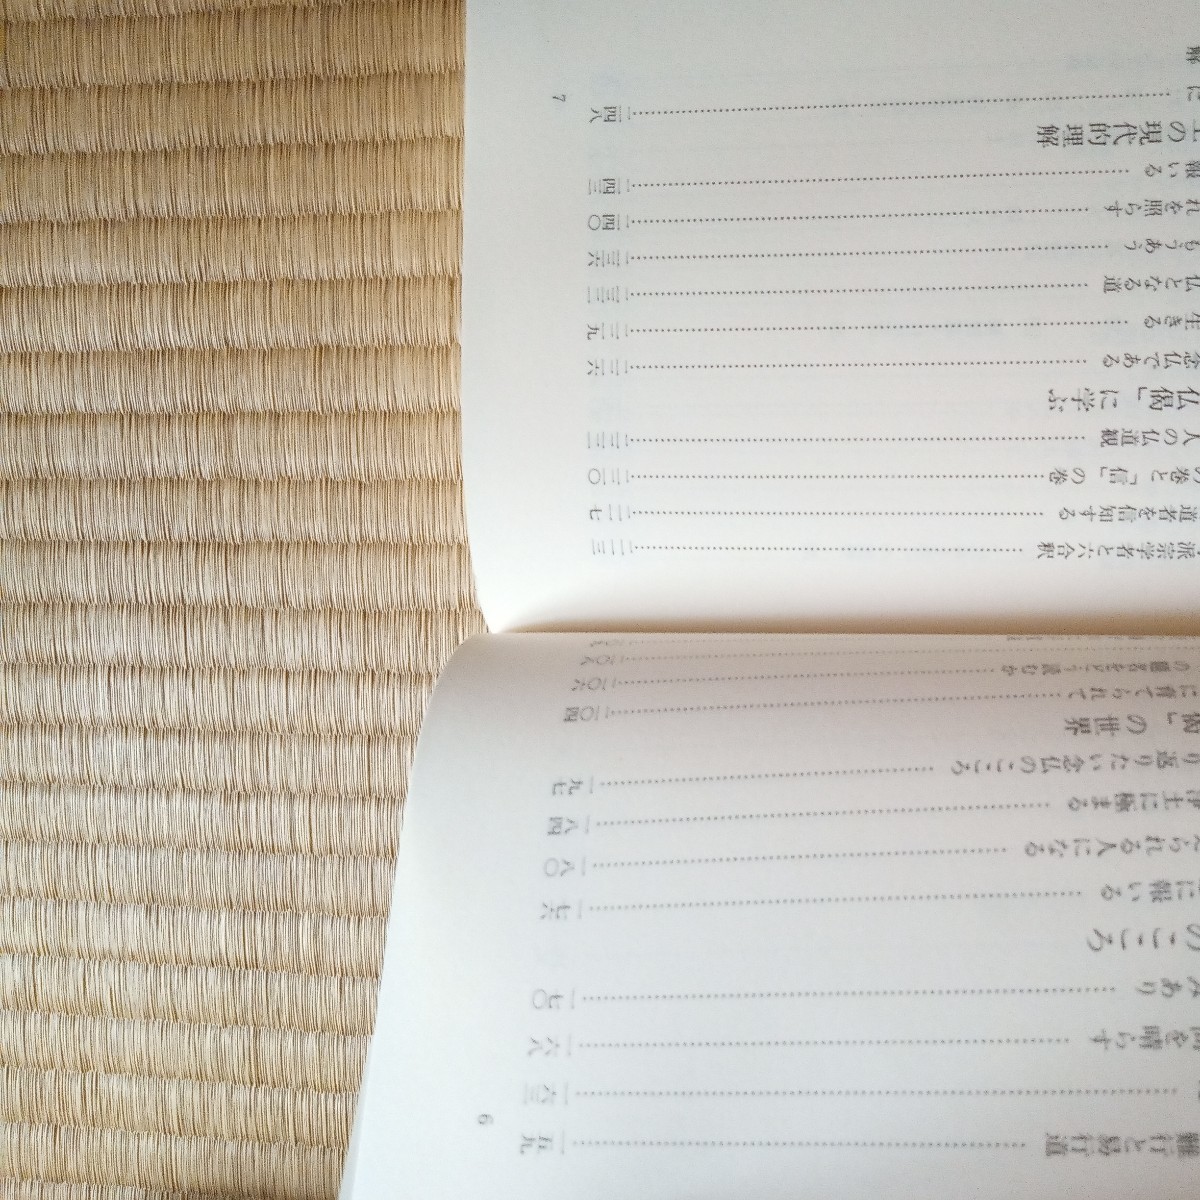 難行と易行道……一五九
……一六三
を晴らす……一六八
みあり……一七〇
のこころ
に報いる……一七六
えられる人になる……一八〇
浄土に極まる……一八四
り返りたい念仏のこころ……一九七
偈」の世界
に育てられて……二〇四
の題名をどう読むか……二〇六
……二〇八
6
派宗学者と六合釈……二一三
道者を信知する……二一七
の巻と「信」の巻……二二〇
人の仏道観……二二三
仏偈」に学ぶ
念仏である……二二六
生きる……二二九
仏となる道……
もうあう……二三六
れを照らす……二四〇
報いる……二四三
土の現代的理解
に……二四八
解
7